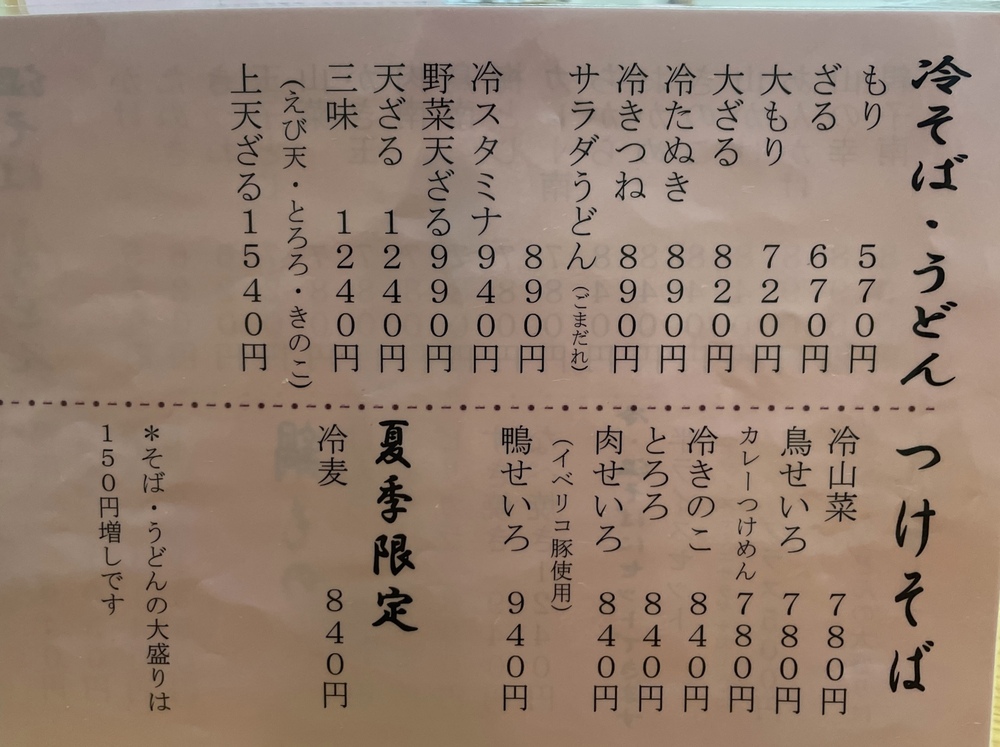 冷そば・うどん
もり 570円
ざる 670円
大もり 720円
大ざる 820円
冷たぬき 890円
冷きつね 890円
サラダうどん(ごまだれ)
890円
冷スタミナ 940円
野菜天ざる 990円
天ざる 1240円
三味 1240円
(えび天・とろろ・きのこ)
上天ざる 1540円
つけそば
冷山菜 780円
鳥せいろ 780円
カレーつけめん 780円
冷きのこ 840円
とろろ 840円
肉せいろ 840円
(イベリコ豚使用)
鴨せいろ 940円
夏季限定
冷麦 840円
*そば・うどんの大盛りは
150円増しです